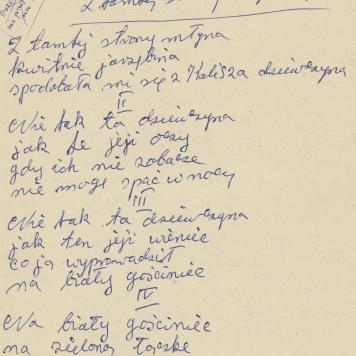 Z tamtej strony młyna
kwitnie jarzębina
spodobała mi się z Kalisza dziewczyna
II
Nie tak ta dziewczyna
jak te jeji oczy
gdy ich nie zobacze
nie moge spać w nocy
III
Nie tak ta dziewczyna
jak ten jeji wieniec
co ja wyprowadził
na biały gościniec
IV
Na biały gościniec
na zieloną łączke